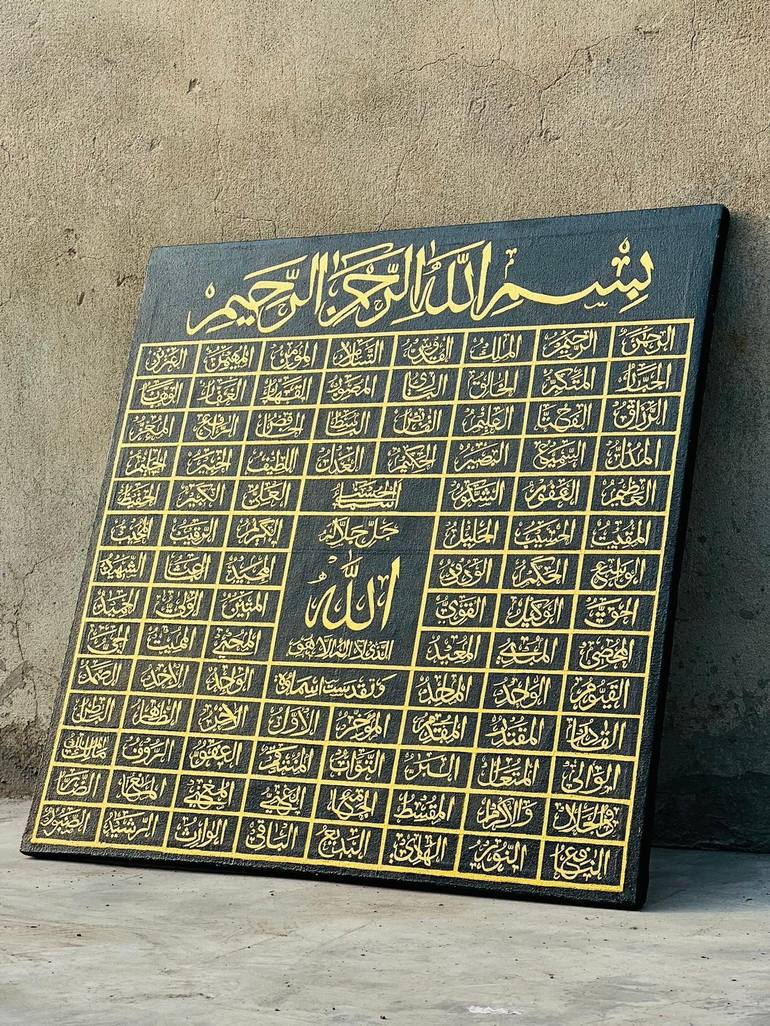 بِسْمِ اللهِ الرَّحْمٰنِ الرَّحِيمِ
الرحمن الرحيم الملك القدوس السلام المؤمن المهيمن العزيز
الجبار المتكبر الخالق البارئ المصور القهار الغفار الوهاب
الرزاق الفتاح العليم القابض الباسط الخافض الرافع المعز
المذل السميع البصير الحكم العدل اللطيف الخبير الحليم
العظيم الغفور الشكور العلي الكبير الحفيظ
المقيت الحسيب الجليل جل جلاله الكريم الرقيب المجيب
الواسع الحكيم الودود المجيد الباعث الشهيد
الحق الوكيل القوي الله المتين الولي الحميد
المحصي المبدئ المعيد الذي لا اله الا هو المحيي المميت الحي
القيوم الواجد الماجد وتقدست اسماؤه الواحد الاحد الصمد
القادر المقتدر المقدم المؤخر الاول الاخر الظاهر الباطن
الوالي المتعال البر التواب المنتقم العفو الرؤف مالك الملك
ذوالجلال والاكرام المقسط الجامع الغني المغني المانع الضار
النافع النور الهادي البديع الباقي الوارث الرشيد الصبور